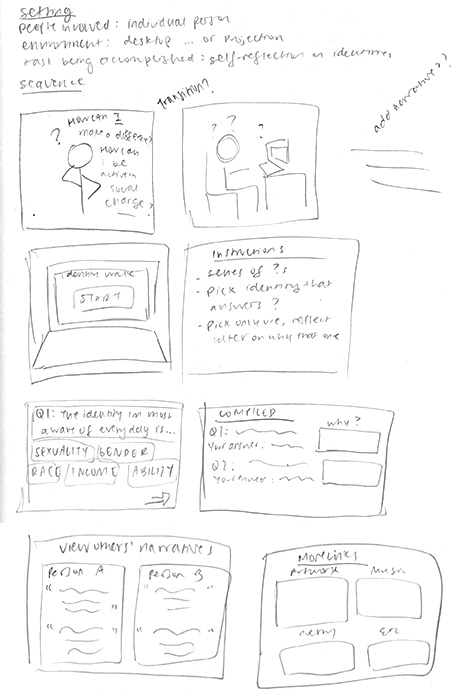 setting
people involved: individual person
environment: desktop ... or projection
task being accomplished: self-reflection on identities
sequence
transition?
add narrative??
?
How can I
make a difference?
How can
i be
active in
social
change?
? ? ?
identity walk
START
Instructions
- series of ?s
- pick identity that
answers ?
- pick only one, reflect
later on why that one
Q1: The identity im most
aware of everyday is...
SEXUALITY GENDER
RACE INCOME ABILITY
COMPILED
why?
Q1:
Your answer:
Q2:
Your answer:
view others' narratives
Person A
Person B
" "
" "
More Links
Artwork Music
Poetry Etc